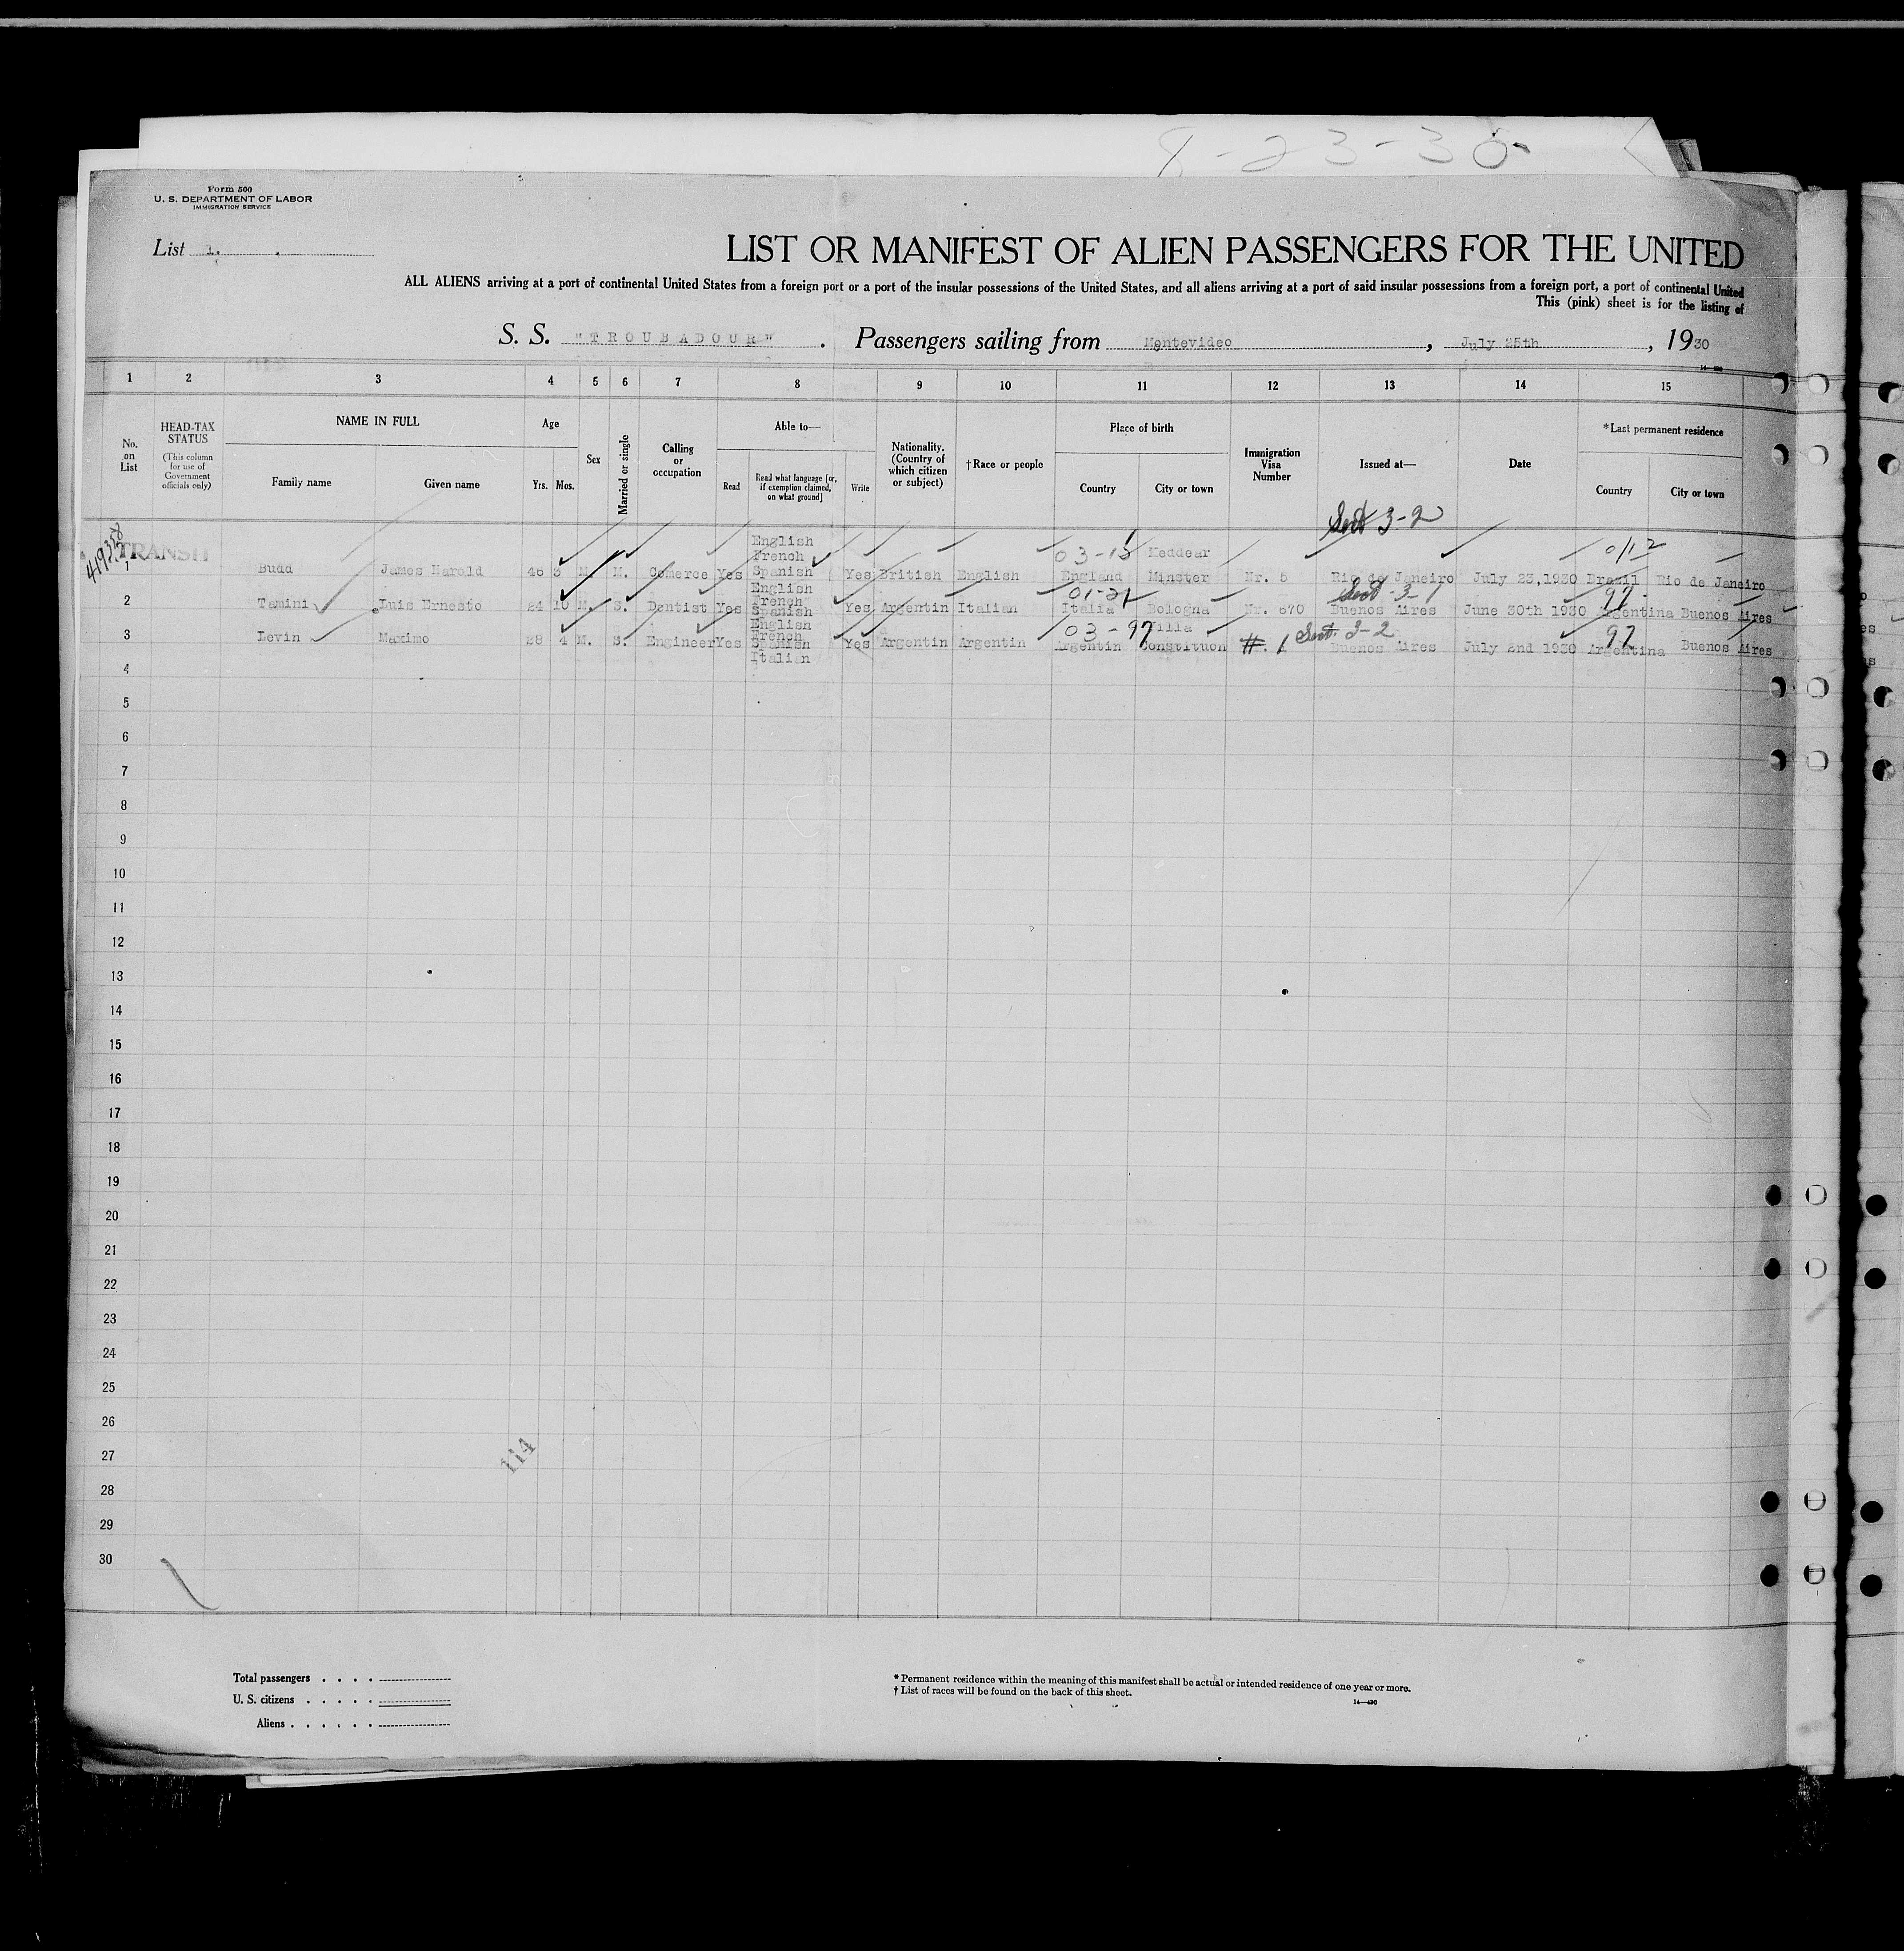 8-23-30
Form 500
U. S. DEPARTMENT OF LABOR
IMMIGRATION SERVICE
List 1.
LIST OR MANIFEST OF ALIEN PASSENGERS FOR THE UNITED
ALL ALIENS arriving at a port of continental United States from a foreign port or a port of the insular possessions of the United States, and all aliens arriving at a port of said insular possessions from a foreign port, a port of continental United
This (pink) sheet is for the listing of
S. S. "TROUBADOUR" . Passengers sailing from Montevideo , July 25th , 1930
14—430
1 2 3 4 5 6 7 8 9 10 11 12 13 14 15
No. on List
HEAD-TAX STATUS
(This column for use of Government officials only)
NAME IN FULL
Family name Given name
Age
Yrs. Mos.
Sex
Married or single
Calling or occupation
Able to—
Read
Read what language [or, if exemption claimed, on what ground]
Write
Nationality. (Country of which citizen or subject)
†Race or people
Place of birth
Country City or town
Immigration Visa Number
Issued at—
Date
*Last permanent residence
Country City or town
Sect 3-2
419358
TRANSIT
English
French 03-13 Meddear 0/12
1 Budd James Harold 46 3 M. M. Comerce Yes Spanish Yes British English England Minster Nr. 5 Rio de Janeiro July 23,1930 Brasil Rio de Janeiro
English 01-21 Sect 3-1 97
French
2 Tamini Luis Ernesto 24 10 M. S. Dentist Yes Spanish Yes Argentin Italian Italia Bologna Nr. 670 Buenos Aires June 30th 1930 Argentina Buenos Aires
English
French 03-97 Villa Sect. 3-2 97
3 Levin Maximo 28 4 M. S. Engineer Yes Spanish Yes Argentin Argentin Argentin Constitucn #. 1 Buenos Aires July 2nd 1930 Argentina Buenos Aires
Italian
4
5
6
7
8
9
10
11
12
13
14
15
16
17
18
19
20
21
22
23
24
25
26
27
114
28
29
30
Total passengers . . . .
U. S. citizens . . . . .
Aliens . . . . . .
* Permanent residence within the meaning of this manifest shall be actual or intended residence of one year or more.
† List of races will be found on the back of this sheet.
14—430